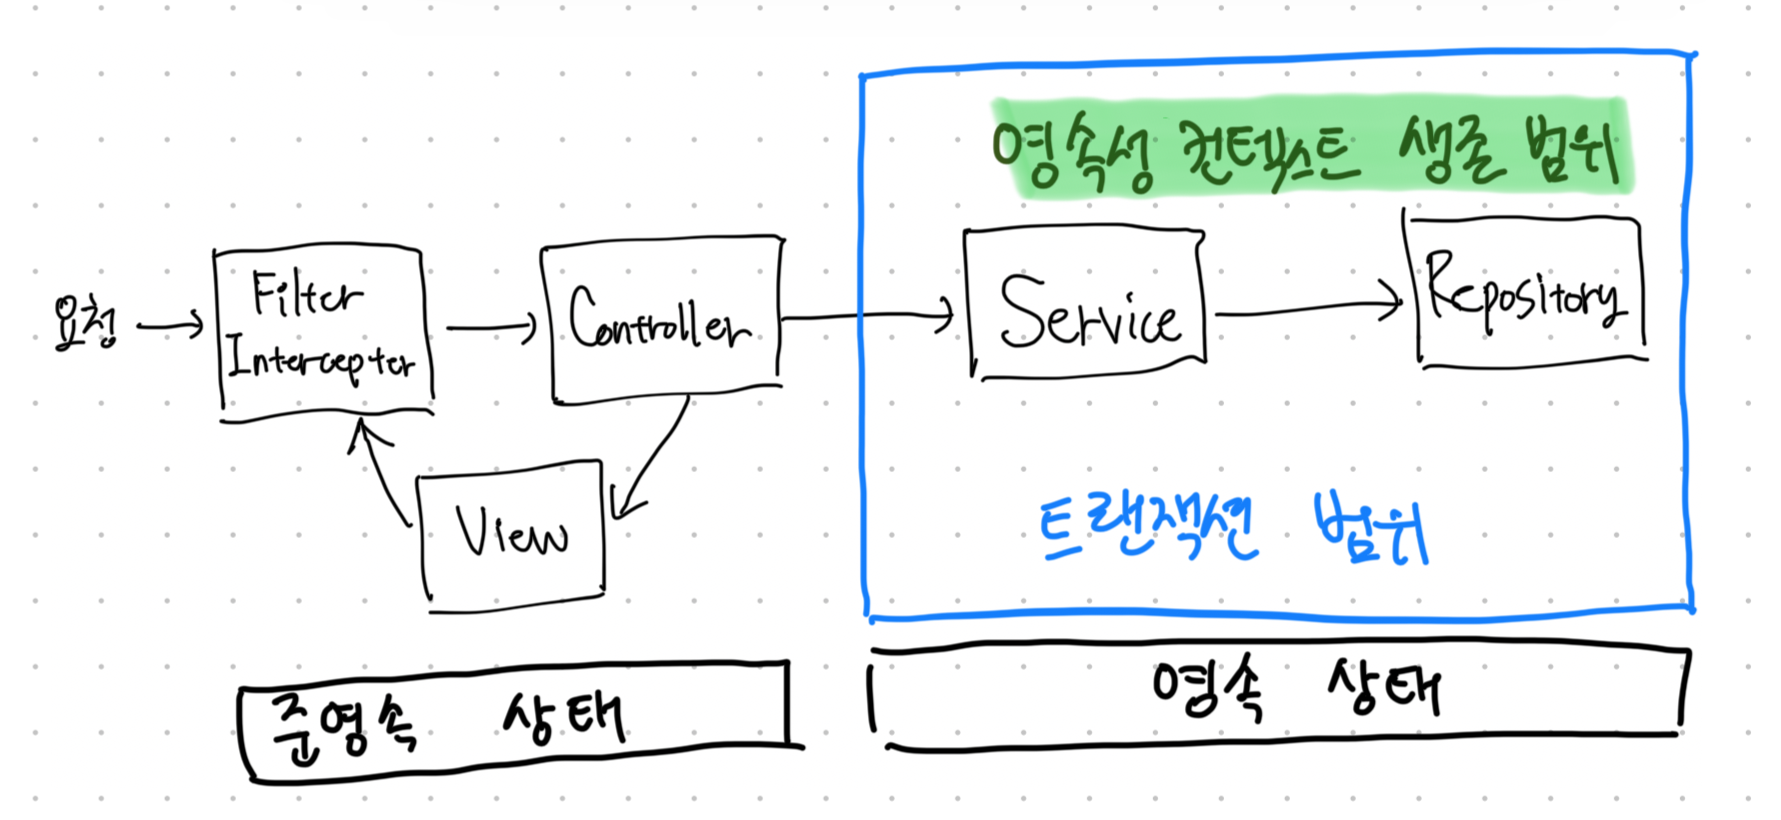 영속성 컨텍스트 생존 범위
요청
Filter
Intercepter
Controller
Service
Repository
View
트랜잭션 범위
준영속 상태
영속 상태